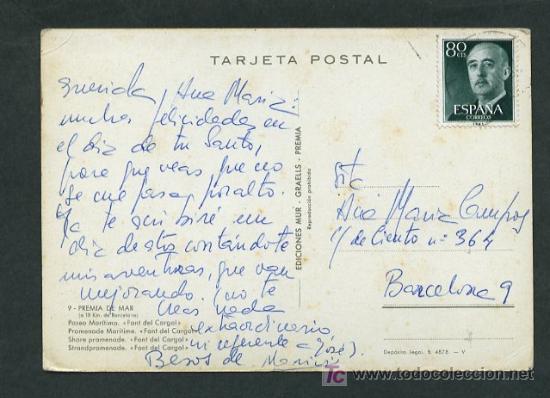 TARJETA POSTAL
80 CTS
ESPAÑA
CORREOS
Querida Ana Maria:
muchas felicidades en
el dia de tu Santo,
para que veas, que no
se me pasa por alto.
Ya te escribiré un
dia de stos contándote
mis aventuras, que van
mejorando. (no te
creas nada
extraordinario
ni referente a José).
Besos de
EDICIONES MUR - GRAELLS - PREMIA
Reproducción prohibida
Ana Maria Campos
c/ de Ciento nº 364
Barcelona 9
9 - PREMIA DE MAR
(a 18 Km. de Barcelona)
Paseo Marítimo. «Font del Cargol»
Promenade Maritime. «Font del Cargol»
Shore promenade. «Font del Cargol»
Strandpromenade. «Font del Cargol»
Depósito legal. B. 4878. - V
todocoleccion
www.todocoleccion.net